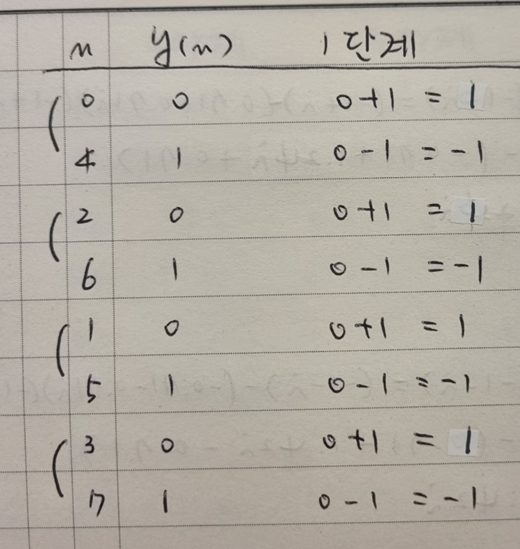 n y(n) 1단계
0 0 0+1 = 1
4 1 0-1 = -1
2 0 0+1 = 1
6 1 0-1 = -1
1 0 0+1 = 1
5 1 0-1 = -1
3 0 0+1 = 1
7 1 0-1 = -1